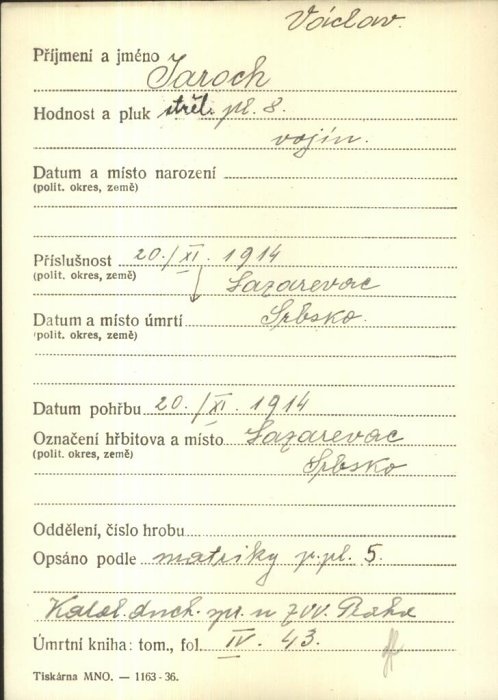 Václav.
Příjmení a jméno Jaroch
Hodnost a pluk střel. pl. 8.
vojín.
Datum a místo narození
(polit. okres, země)
Příslušnost 20./XI. 1914
(polit. okres, země)
Lazarevac
Datum a místo úmrtí Srbsko.
(polit. okres, země)
Datum pohřbu 20./XI. 1914
Označení hřbitova a místo Lazarevac
(polit. okres, země)
Srbsko
Oddělení, číslo hrobu
Opsáno podle matriky p. pl. 5.
Katol. duch. spr. u ZVV. Praha
Úmrtní kniha: tom., fol. IV. 43.
Tiskárna MNO. — 1163-36.